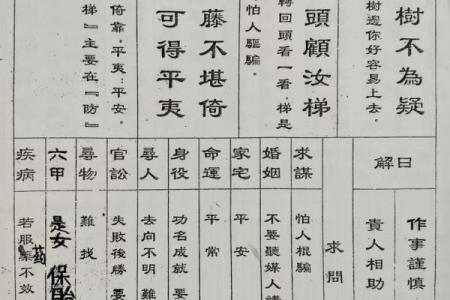 樹不為疑
樹邊你好容易上去。
頭顧汝梯
轉回頭看一看，梯是
怕人驅騙。
藤不堪倚
可得平夷
倚靠。平夷：平安。
梯』主要在『防』
日解
作事謹慎
貴人相助
求問
求謀
怕人棍騙
婚姻
不要聽媒人
家宅
平安
命運
平常
身役
功名成就要
尋人
去向不明難
官訟
失敗後勝要
尋物
難找
六甲
是女保胎
疾病
若服药不效